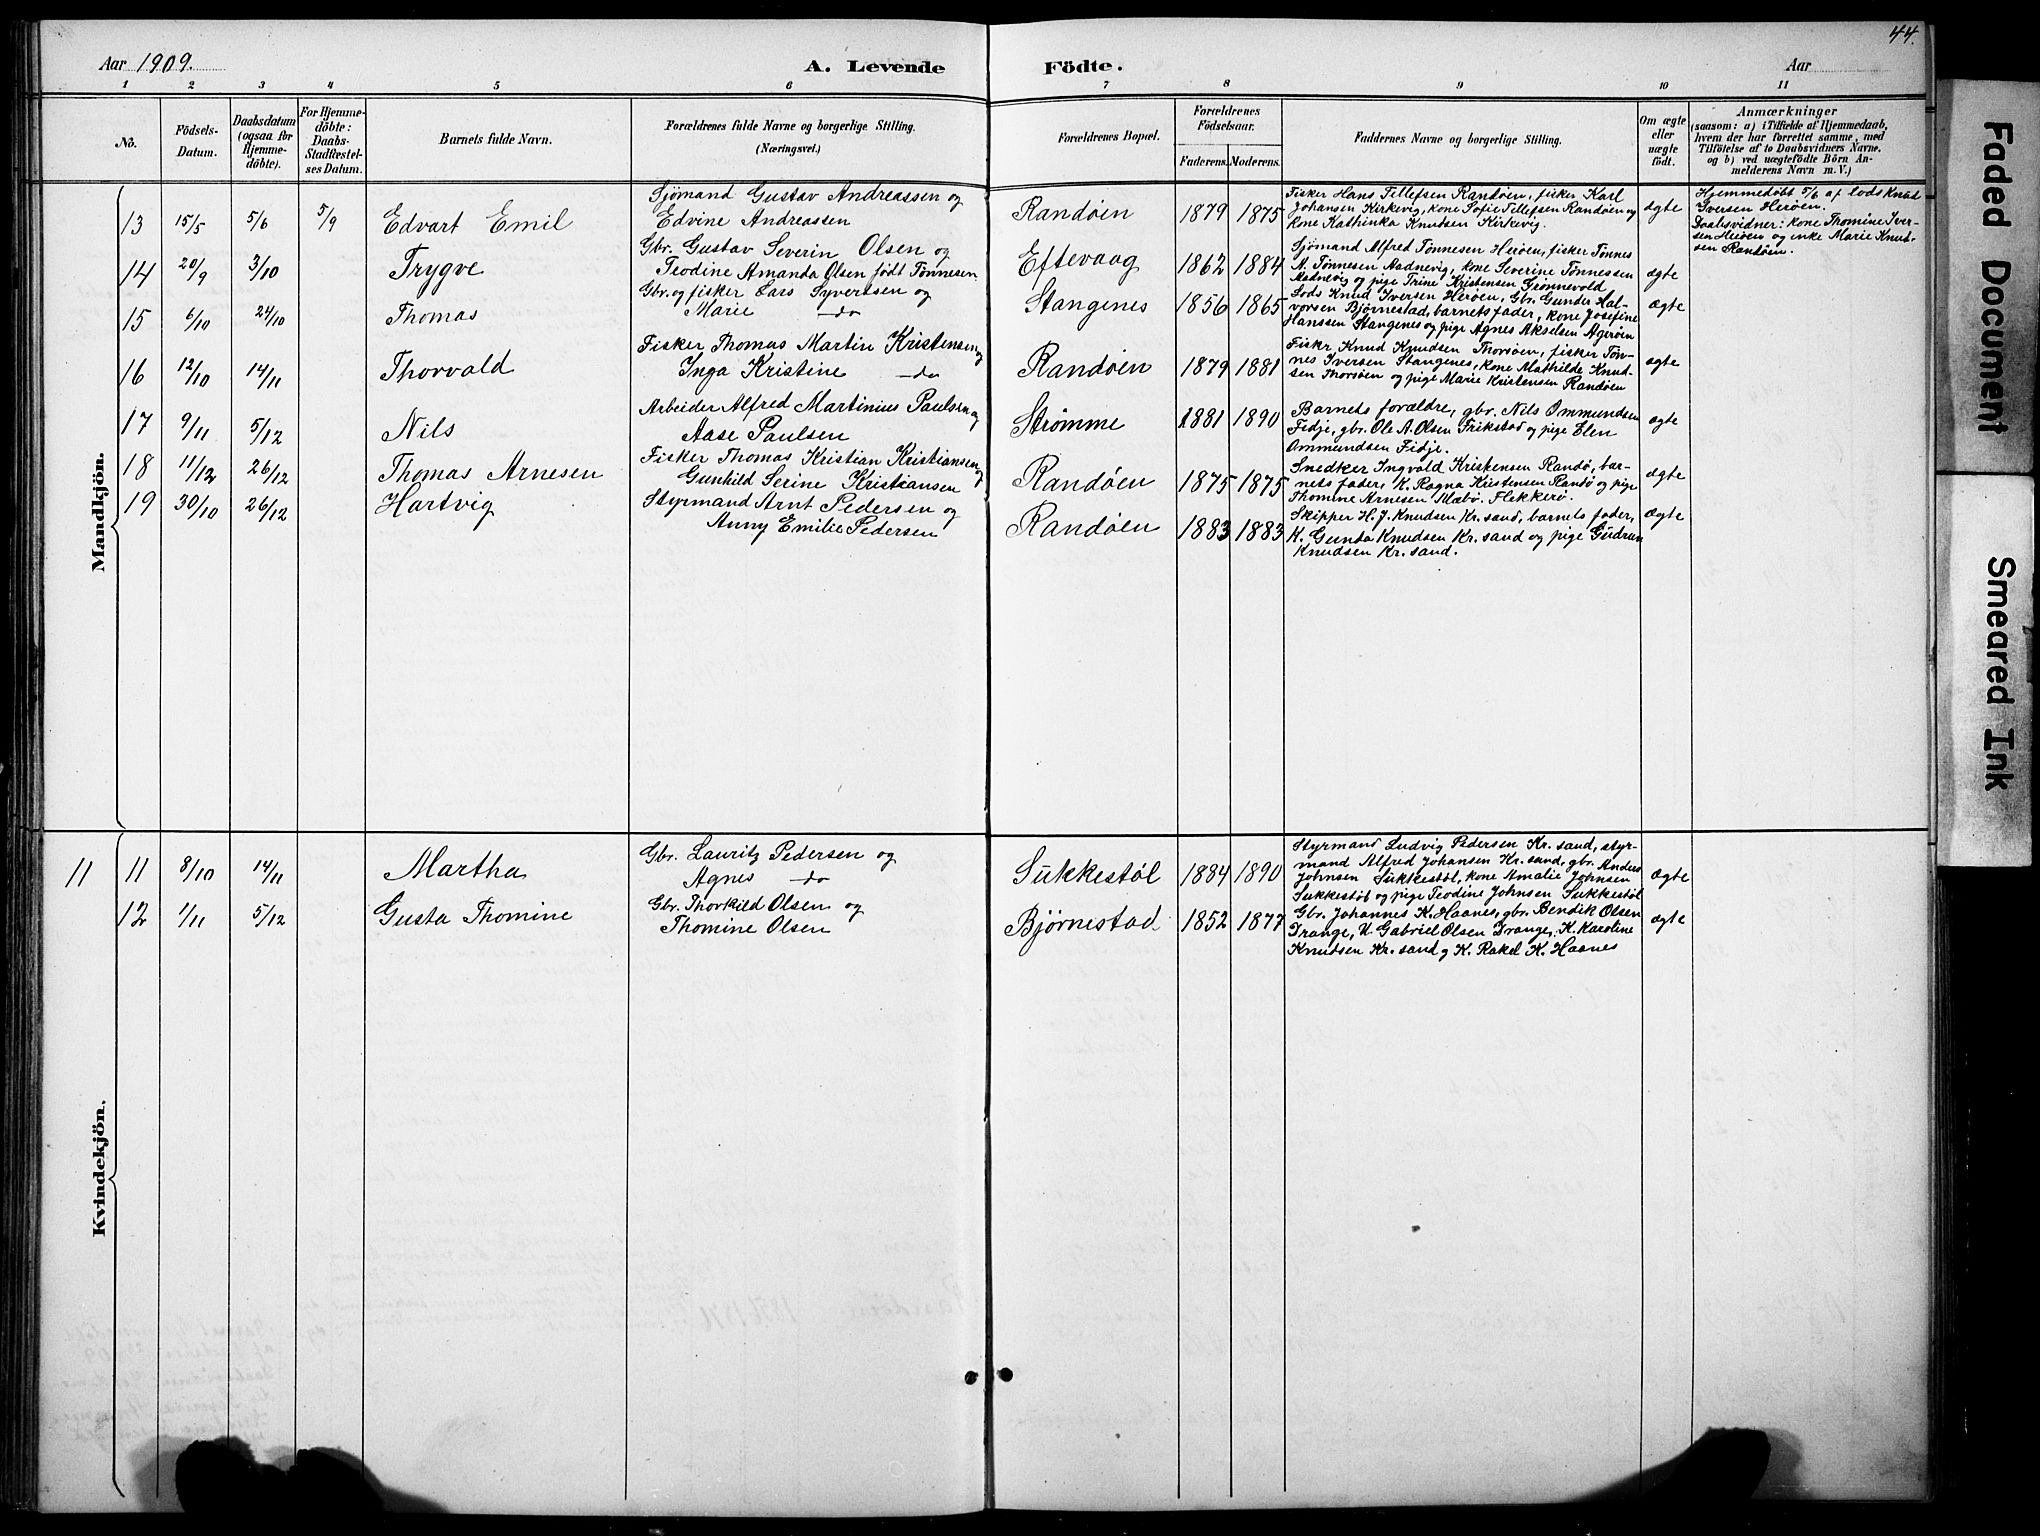 44.
Aar 1909.
A. Levende Födte.
Aar
1 2 3 4 5 6 7 8 9 10 11
No.
Födsels-
Datum.
Daabsdatum
(ogsaa for
Hjemme-
döbte).
For Hjemme-
döbte:
Daabs-
Stadfæstel-
ses Datum.
Barnets fulde Navn.
Forældrenes fulde Navne og borgerlige Stilling.
(Næringsvei.)
Forældrenes Bopæl.
Forældrenes
Födselsaar.
Faderens. Moderens.
Faddernes Navne og borgerlige Stilling.
Om ægte
eller
uægte
födt.
Anmærkninger
(saasom: a) i Tilfælde af Hjemmedaab,
hvem der har forrettet samme, med
Tilföielse af to Daabsvidners Navne,
og b) ved uægtefödte Börn An-
melderens Navn m. V.)
Mandkjön.
13 15/5 5/6 5/9 Edvart Emil
Sjömand Gustav Andreassen og
Edvine Andreassen
Randöen 1879 1875
Fisker Hans Tellefsen Randöen, fisker Karl
Johansen Kirkevig, kone Sofie Tellefsen Randöen og
Kone Kathinka Knudsen Kirkevig.
ægte
Hjemmedöbt 5/6 af lods Knud
Iversen Heröen.
Daabsvidner: kone Thomine Iver-
sen Heröen og enke Marie Knud-
sen Randöen.
14 20/9 3/10 Trygve
Gbr. Gustav Severin Olsen og
Teodine Amanda Olsen født Tönnesen
Eftevaag 1862 1884
Sjömand Alfred Tönnesen Heröen, fisker Tönnes
A. Tönnesen Aadnevig, kone Severine Tönnessen
Aadnevig og pige Trine Kristensen Grönnevold
ægte
15 6/10 24/10 Thomas
Gbr. og fisker Lars Syvertsen og
Marie do
Stangenes 1856 1865
Lods Knud Iversen Heröen, Gbr. Gunder Hal-
vorsen Björnestad, barnets fader, kone Josefine
Hanssen Stangenes og pige Agnes Akselsen Ageröen
ægte
16 12/10 14/11 Thorvald
Fisker Thomas Martin Kristensen og
Inga Kristine do
Randöen 1879 1881
Fiskr Knud Knudsen Thorsöen, fisker Tön-
nes Iversen Stangenes, kone Mathilde Knud-
sen Thorsöen og pige Marie Kristensen Randöen
ægte
17 9/11 5/12 Nils
Arbeider Alfred Martinius Paulsen og
Aase Paulsen
Strömme 1881 1890
Barnets forældre, gbr. Nils Ommundsen
Fidje, gbr. Ole A. Olsen Frikstad og pige Elen
Ommundsen Fidje.
ægte
18 11/12 26/12 Thomas Arnesen
Fisker Thomas Kristian Kristiansen og
Gunhild Serine Kristiansen
Randöen 1875 1875
Snedker Ingvald Kristensen Randö, bar-
nets fader, K. Ragna Kristensen Randö og pige
Thomine Arnesen Mæbö, Flekkerö.
ægte
19 30/10 26/12 Hartvig
Styrmand Arnt Pedersen og
Anny Emilie Pedersen
Randöen 1883 1883
Skipper H. J. Knudsen Kr. sand, barnets fader,
K. Gunda Knudsen Kr. sand og pige Gudrun
Knudsen Kr. sand.
ægte
Kvindekjön.
11 11 8/10 14/11 Martha
Gbr. Lauritz Pedersen og
Agnes do
Sukkestöl 1884 1890
Styrmand Ludvig Pedersen Kr. sand, styr-
mand Alfred Johansen Kr. sand, gbr. Anders
Johnsen Sukkestöl, kone Amalie Johnsen
Sukkestöl og pige Teodine Johnsen Sukkestöl
ægte
12 1/11 5/12 Gusta Thomine
Gbr. Thorkild Olsen og
Thomine Olsen
Björnestad 1852 1877
Gbr. Johannes K. Haanes, gbr. Bendik Olsen
Drange, U. Gabriel Olsen Drange, K. Karoline
Knudsen Kr. sand og K. Rakel K. Haanes
ægte
Faded Document
Smeared Ink